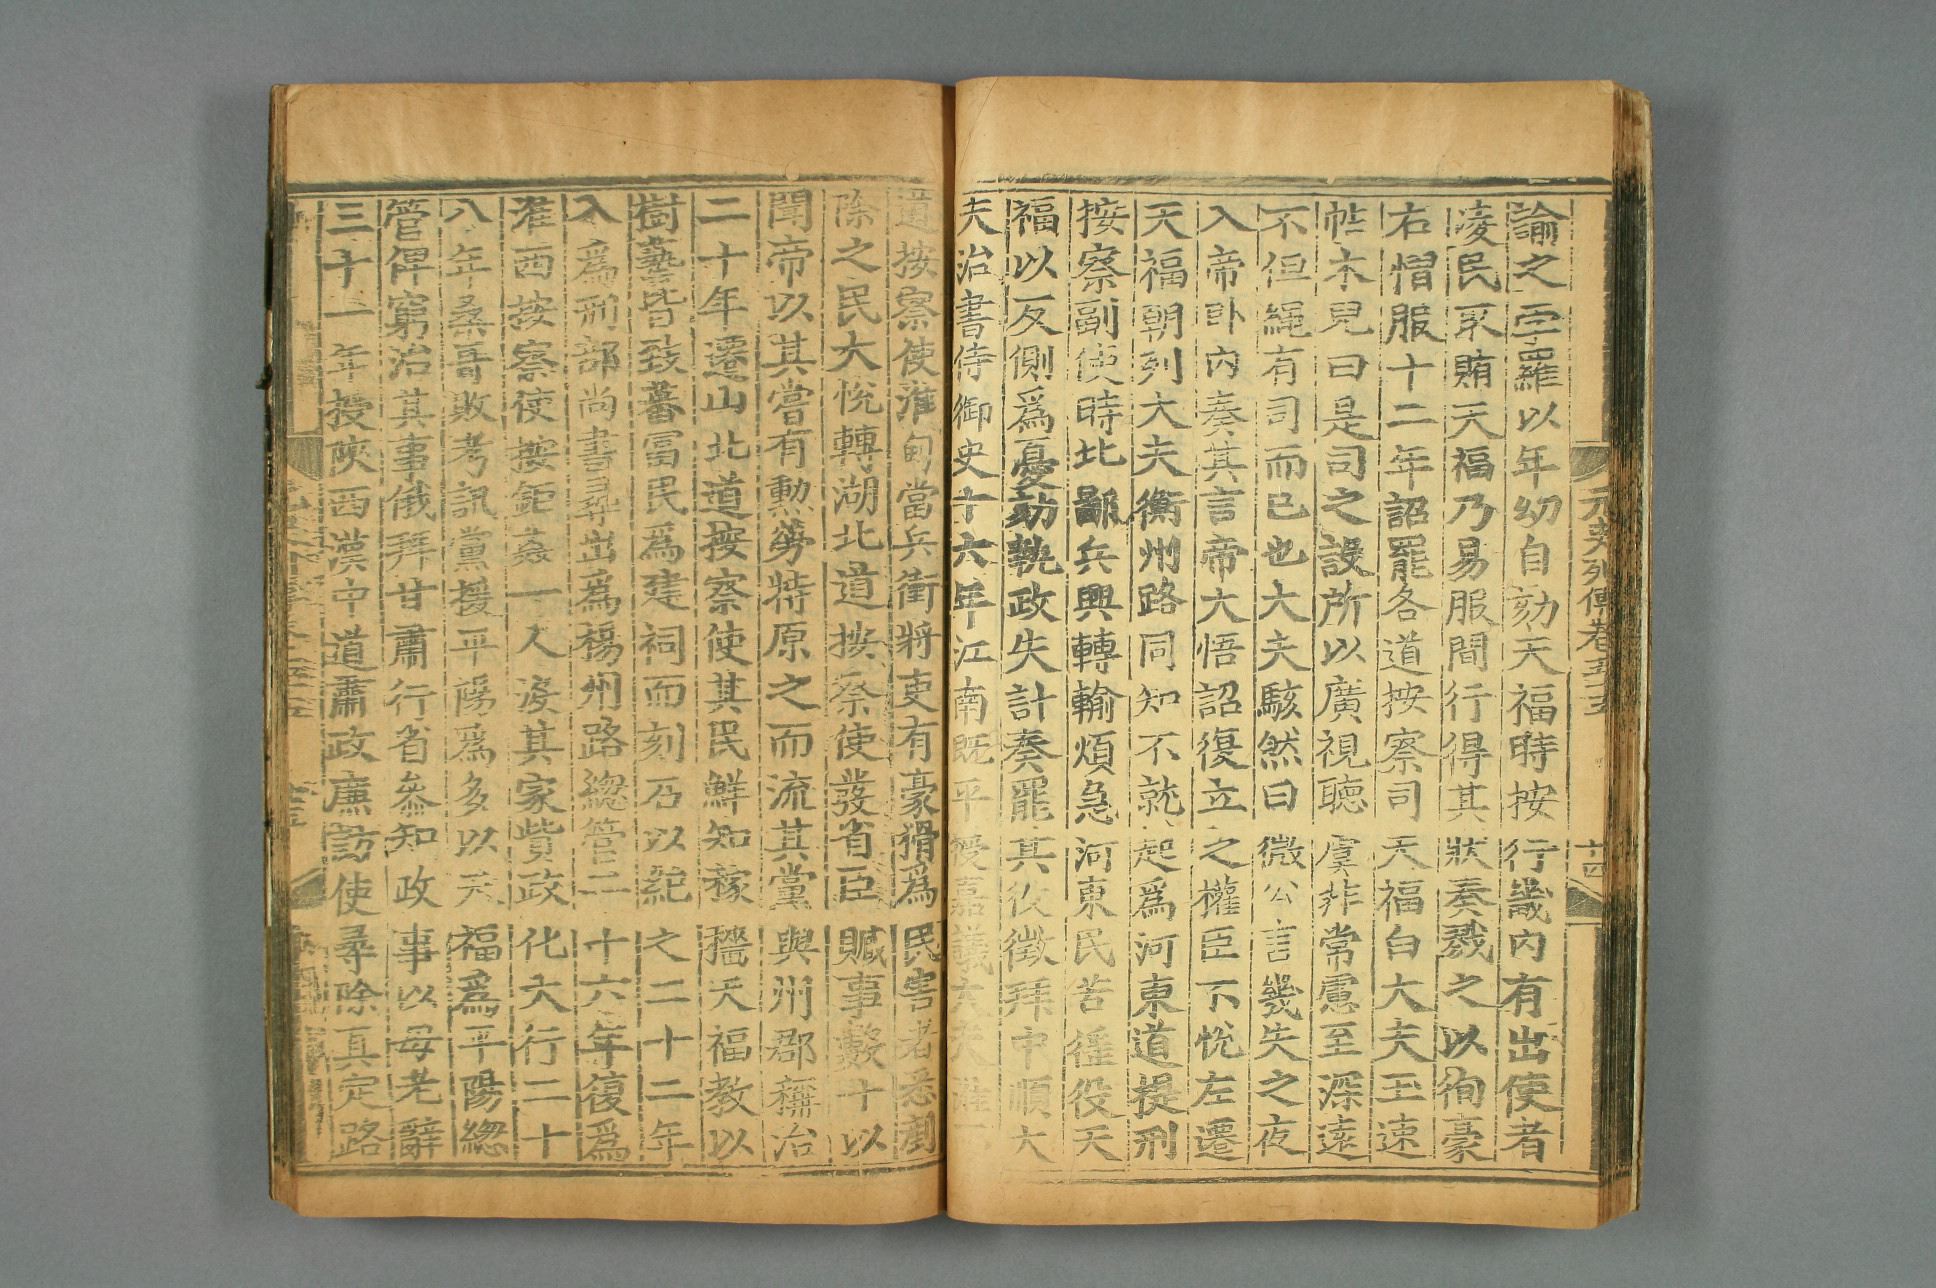 元史列傳卷五十五
十四
諭之亞羅以年幼自劾天福時按行畿內有出使者
凌民取賄天福乃易服間行得其狀奏戮之以徇豪
右慴服十二年詔罷各道按察司天福白大夫玉速
帖木兒曰是司之設所以廣視聽虞非常慮至深遠
不但繩有司而已也大夫駭然曰微公言幾失之夜
入帝卧內奏其言帝大悟詔復立之權臣不悅左遷
天福朝列大夫衡州路同知不就起爲河東道提刑
按察副使時北鄙兵興轉輸煩急河東民苦徭役天
福以反側爲憂劾執政失計奏罷其役徵拜中順大
夫治書侍御史十六年江南既平授嘉議大夫淮西
道按察使淮甸當兵衝將吏有豪猾爲民害者悉剷
除之民大悅轉湖北道按察使發省臣贓事數十以
聞帝以其嘗有勲勞特原之而流其黨與州郡稱治
二十年遷山北道按察使其民鮮知稼穡天福教以
樹藝皆致蕃富民爲建祠而刻石以紀之二十二年
入爲刑部尚書尋出爲楊州路總管二十六年復爲
淮西按察使按鉅姦一人沒其家貲政化大行二十
八年桑哥敗考訊黨援平陽爲多以天福爲平陽總
管俾窮治其事俄拜甘肅行省叅知政事以母老辭
三十一年授陝西漢中道肅政廉訪使尋除真定路